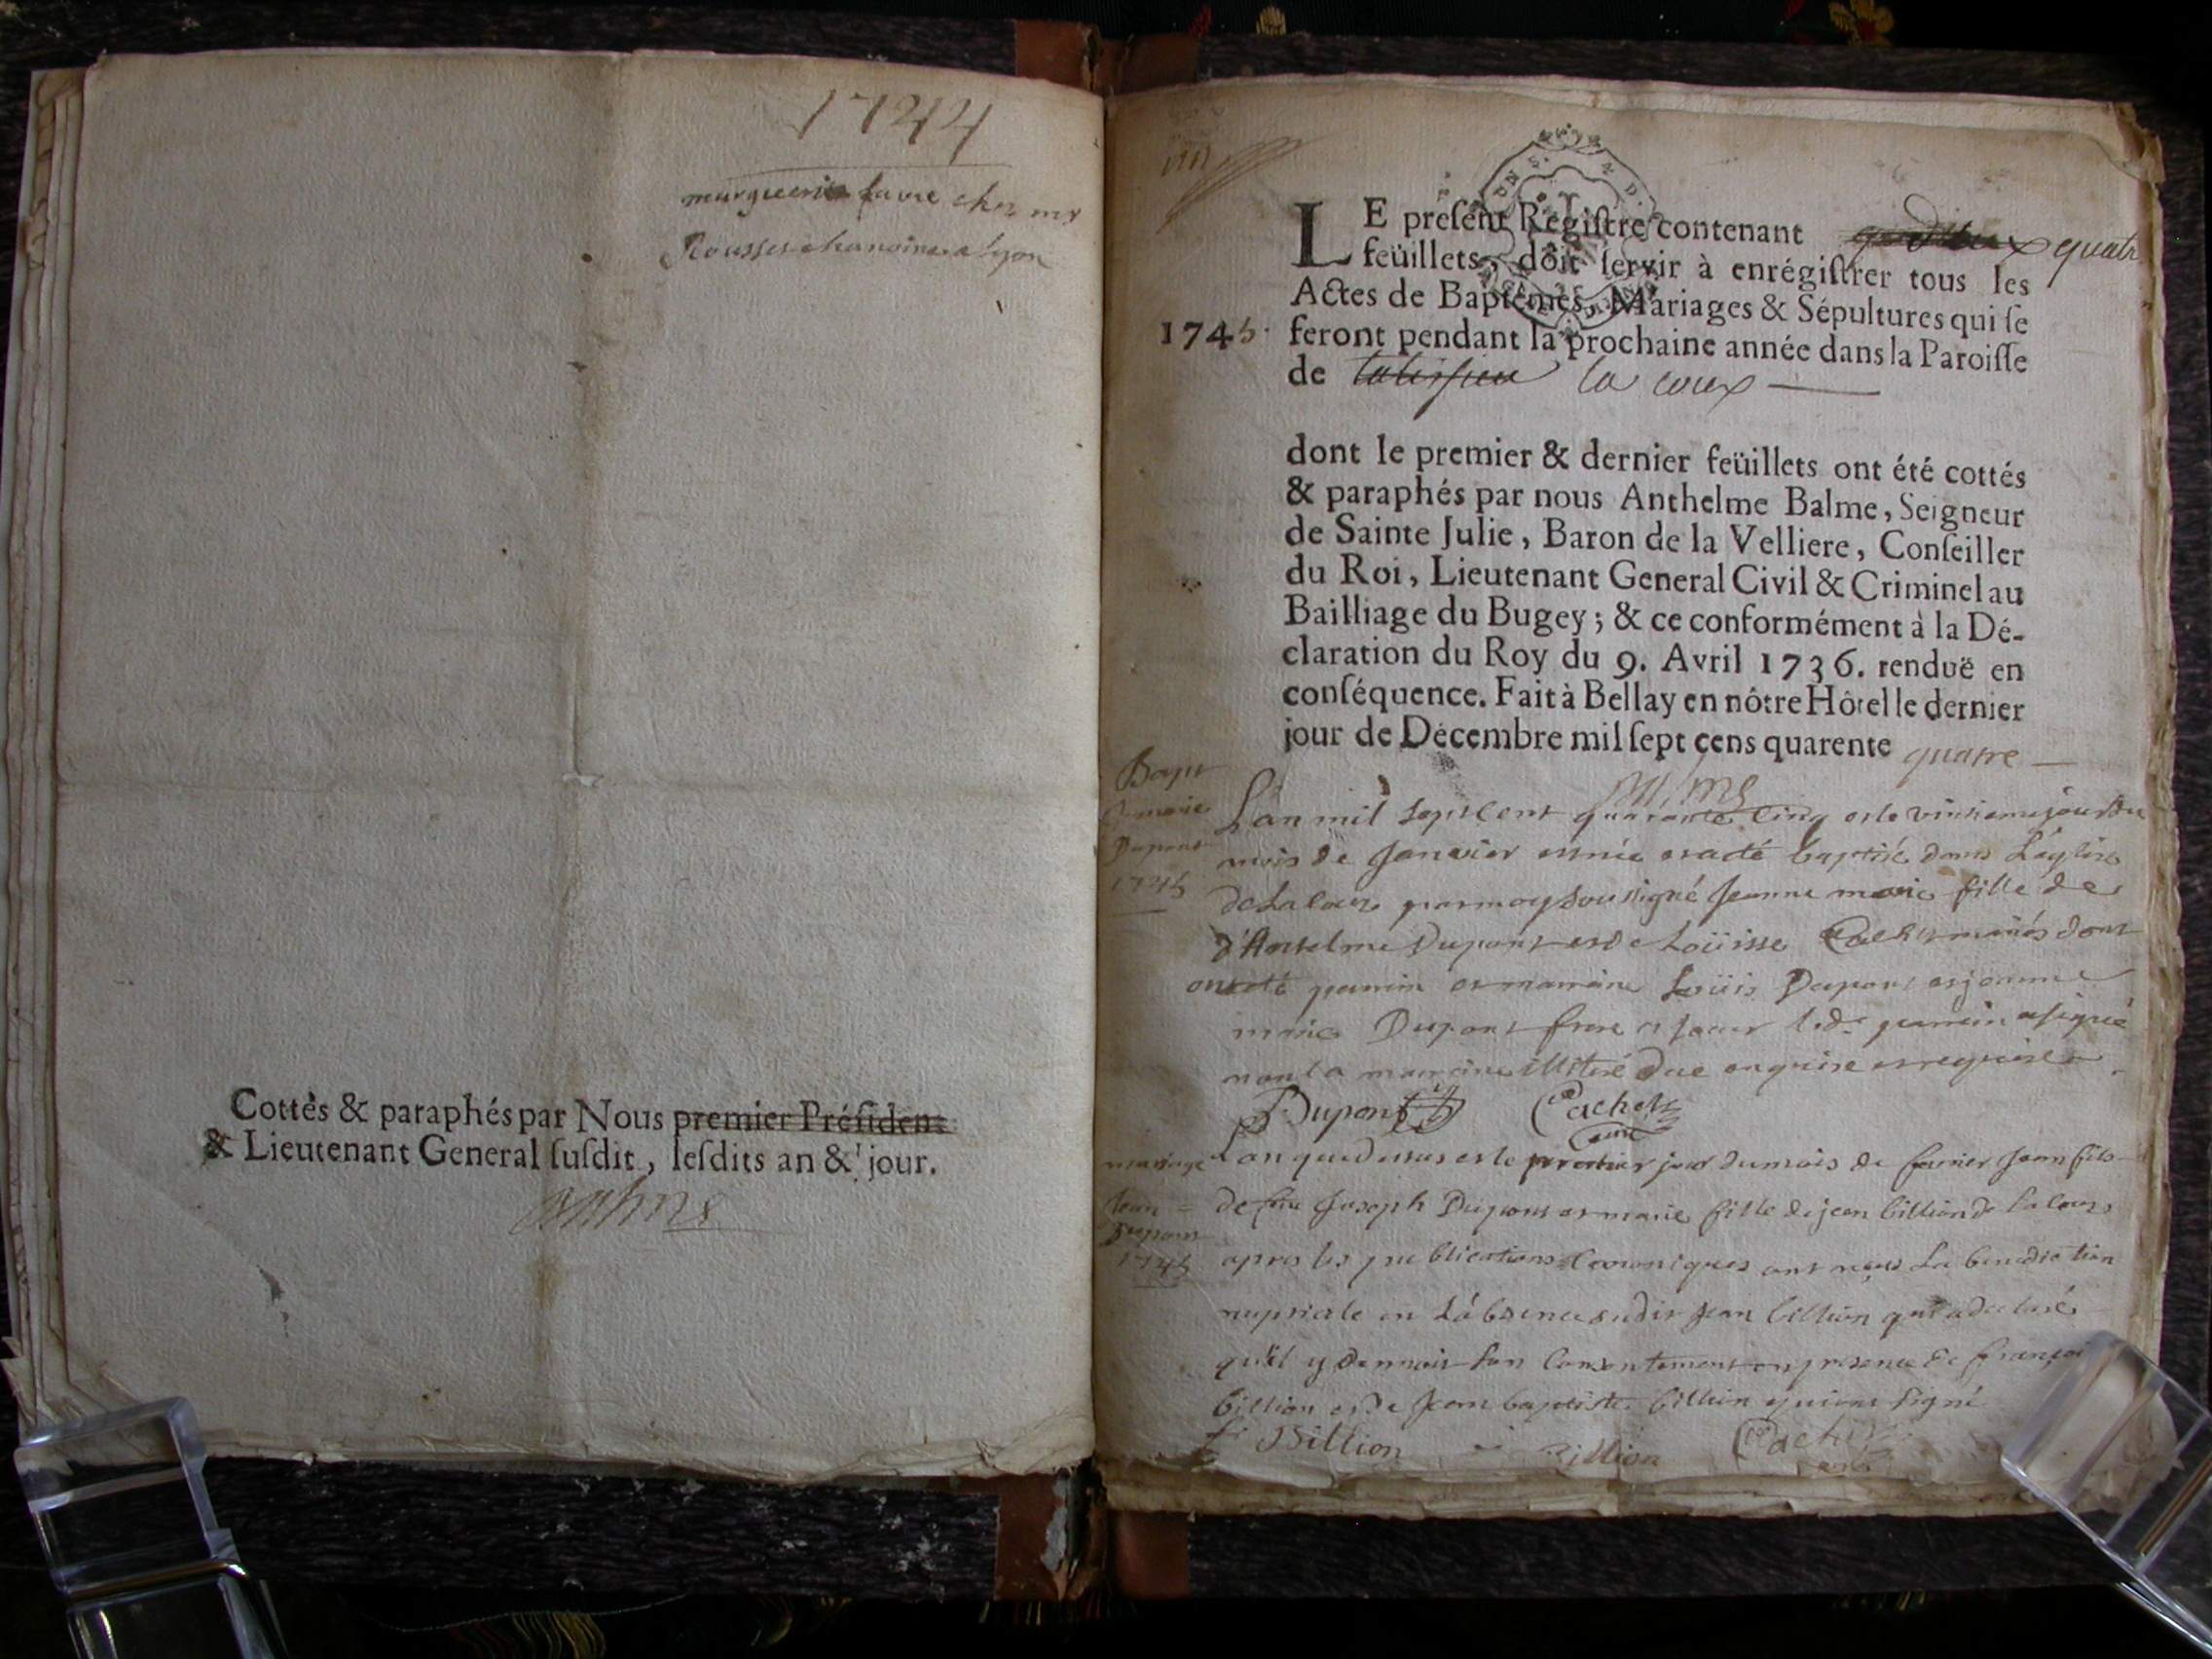 1744
marguerite favre chez mr
Rousset chanoine a lyon
Cottés & paraphés par Nous premier Préſident
& Lieutenant General ſuſdit, leſdits an & jour.
LE preſent Regiſtre contenant quatre
feüillets, doit ſervir à enrégiſtrer tous les
Actes de Baptêmes, Mariages & Sépultures qui ſe
1745. feront pendant la prochaine année dans la Paroiſſe
de talissieu la coux
dont le premier & dernier feüillets ont été cottés
& paraphés par nous Anthelme Balme, Seigneur
de Sainte Julie, Baron de la Velliere, Conſeiller
du Roi, Lieutenant General Civil & Criminel au
Bailliage du Bugey; & ce conformément à la Dé-
claration du Roy du 9. Avril 1736. renduë en
conſéquence. Fait à Bellay en nôtre Hôtel le dernier
jour de Décembre mil ſept cens quarente quatre
Bapt
j marie
Dupont
1745
L'an mil sept cent quarante cinq et le jour du
mois de Janvier est née et a été baptisée dans L'église
de Lacoux par moy soussigné Jeanne marie fille de
d'Antelme Dupont et de Loüisse mariés dont
ont été parrin et marraine Loüis Dupont et jeanne
marie Dupont frere et soeur led. parrein a signé
non la marraine illitéré de ce enquise et requise
Dupont Pachet
curé
mariage
Jean
Dupont
1745
L'an que dessus et le premier jour du mois de fevrier Jean fils
de feu Joseph Dupont et marie fille de jean billion de Lacoux
apres les publications Canoniques ont reçus La benediction
nuptiale en L'absence dudit Jean billion qui a declaré
qu'il y donnoit son Consentement en presence de françois
billion et de Jean baptiste billion qui ont signé
f Billion Billion Pachet